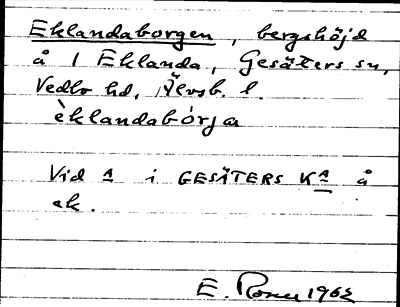 Eklandaborgen, bergshöjd
å 1 Eklanda, Gesäters sn,
Vedbo hd, Älvsb. l.
èklandabórja
Vid a i GESÄTERS Ka å
ek.
E. 1962